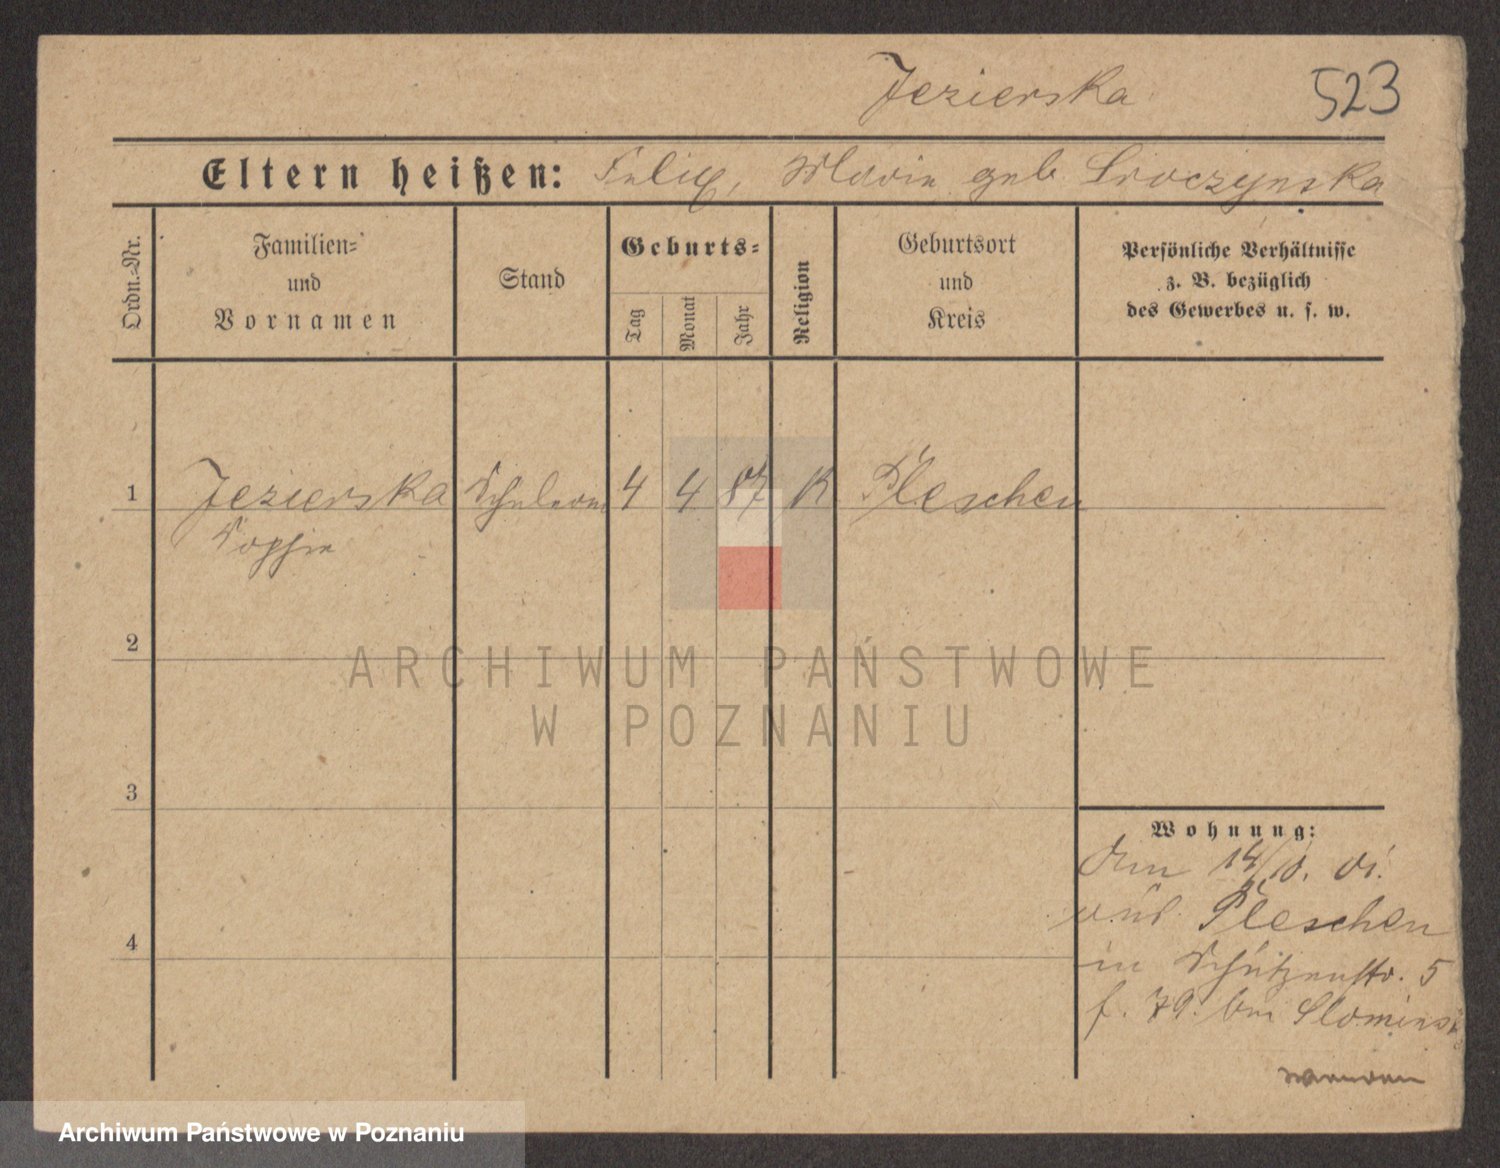 Jezierska 523
Eltern heißen: Felix, Marie geb. Sroczynska
Ordn.-Nr.
Familien-
und
Vornamen
Stand
Geburts-
Tag
Monat
Jahr
Religion
Geburtsort
und
Kreis
Persönliche Verhältnisse
z. B. bezüglich
des Gewerbes u. s. w.
1 Jezierska 4 4 87 K Pleschen
Sophie
2
ARCHIWUM PAŃSTWOWE
W POZNANIU
3
Wohnung:
14/10. 01.
aus Pleschen
4
in Schützenstr. 5
f. 79. bei Slominsk
wenden
Archiwum Państwowe w Poznaniu